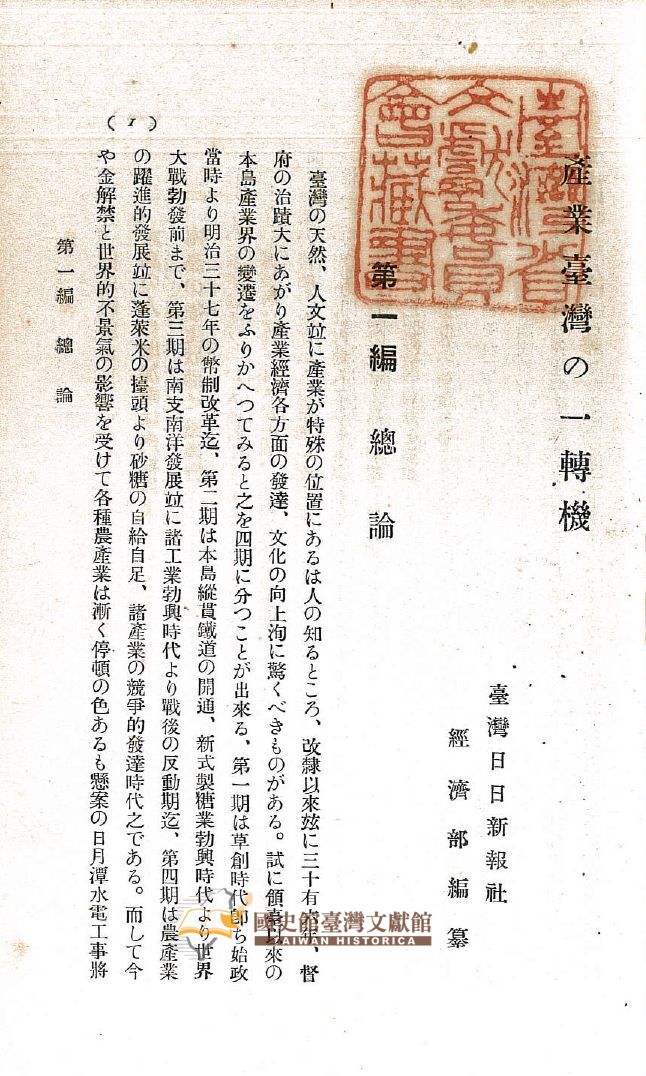 產業臺灣の一轉機
臺灣省
文獻委員
會藏書
臺灣日日新報社
經濟部編纂
第一編 總論
臺灣の天然、人文竝に產業が特殊の位置にあるは人の知るところ、改隸以來玆に三十有六年、督
府の治蹟大にあがり產業經濟各方面の發達、文化の向上洵に驚くべきものがある。試に領臺以來の
本島產業界の變遷をふりかへつてみると之を四期に分つことが出來る、第一期は草創時代卽ち始政
當時より明治三十七年の幣制改革迄、第二期は本島縱貫鐵道の開通、新式製糖業勃興時代より世界
大戰勃發前まで、第三期は南支南洋發展竝に諸工業勃興時代より戰後の反動期迄、第四期は農產業
の躍進的發展竝に蓬萊米の擡頭より砂糖の自給自足、諸產業の競爭的發達時代之である。而して今
や金解禁と世界的不景氣の影響を受けて各種農產業は漸く停頓の色あるも懸案の日月潭水電工事將
第一編 總論
( 1 )
國史館臺灣文獻館
TAIWAN HISTORICA